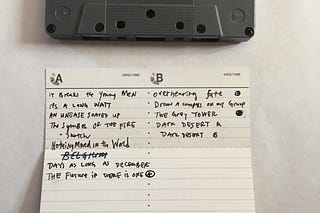 A DATE/TIME
IT BREAKS THE YOUNG MEN
ITS A LONG WAIT
AN UNEASE SOAKED UP
THE SYMBOL OF THE FIRE
- SKETCH
NOTHING MOVED IN THE WORLD
BELGIUM
DAYS AS LONG AS DECEMBER
THE FUTURE IF THERE IS ONE
B DATE/TIME
OVERHEARING FETE
DRAW A COMPASS ON MY
THE GREY TOWER
DARK DESERT A
DARK DESERT B